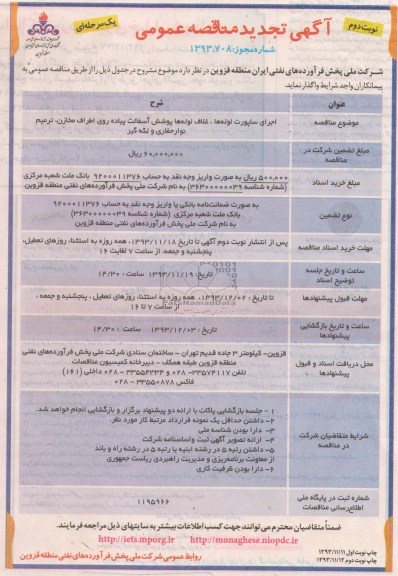 نوبت دوم
آگهی تجدید مناقصه عمومی
یک مرحله‌ای
شماره مجوز: ۱۳۹۳.۷۰۸
شرکت ملی پخش فرآورده‌های نفتی ایران منطقه قزوین در نظر دارد موضوع مشروح در جدول ذیل را از طریق مناقصه عمومی به
پیمانکاران واجد شرایط واگذار نماید.
عنوان
شرح
موضوع مناقصه
اجرای ساپورت لوله‌ها ، غلاف لوله‌ها پوشش آسفالت پیاده روی اطراف مخازن، ترمیم
نوار حفاری و لکه گیر
مبلغ تضمین شرکت در
مناقصه
۶۰,۰۰۰,۰۰۰ ریال
مبلغ خرید اسناد
۵۰۰,۰۰۰ ریال به صورت واریز وجه نقد به حساب ۹۲۰۰۰۱۱۳۷۶ بانک ملت شعبه مرکزی
(شماره شناسه ۳۶۳۰۰۰۰۰۰۳۹) به نام شرکت ملی پخش فرآورده‌های نفتی منطقه قزوین
نوع تضمین
به صورت ضمانت‌نامه بانکی یا واریز وجه نقد به حساب ۹۲۰۰۰۱۱۳۷۶
بانک ملت شعبه مرکزی (شماره شناسه ۳۶۳۰۰۰۰۰۰۳۹)
به نام شرکت ملی پخش فرآورده‌های نفتی منطقه قزوین
مهلت خرید اسناد مناقصه
پس از انتشار نوبت دوم آگهی تا تاریخ ۱۳۹۳/۱۱/۱۸، همه روزه به استثناء روزهای تعطیل،
پنجشنبه و جمعه، از ساعت ۷ لغایت ۱۶
ساعت و تاریخ جلسه
توضیح اسناد
تاریخ: ۱۳۹۳/۱۱/۱۹ ساعت : ۱۴/۳۰
مهلت قبول پیشنهادها
تا تاریخ : ۱۳۹۳/۱۲/۰۲، همه روزه به استثناء روزهای تعطیل ، پنجشنبه و جمعه ،
از ساعت ۷ تا ۱۶
ساعت و تاریخ بازگشایی
پیشنهادها
تاریخ : ۱۳۹۳/۱۲/۰۳ ساعت : ۱۴/۳۰
محل دریافت اسناد و قبول
پیشنهادها
قزوین- کیلومتر ۳ جاده قدیم تهران - ساختمان ستادی شرکت ملی پخش فرآورده‌های نفتی
منطقه قزوین طبقه همکف - دبیرخانه کمیسیون مناقصات
تلفن ۳۳۵۷۴۱۱۷-۰۲۸ و ۳۳۵۵۴۲۳۴ - ۰۲۸ داخلی (۱۶۱)
فاکس ۳۳۵۵۰۸۷۸ - ۰۲۸
شرایط متقاضیان شرکت
در مناقصه
۱ - جلسه بازگشایی پاکات با ارائه دو پیشنهاد برگزار و بازگشایی انجام خواهد شد.
۲- داشتن حداقل یک نمونه قرارداد مرتبط کار مورد نظر.
۳- دارا بودن شناسه ملی
۴- ارائه تصویر آگهی ثبت و اساسنامه شرکت
۵- داشتن رتبه ۵ در رشته ابنیه یا رتبه ۵ در رشته راه و باند
از معاونت برنامه‌ریزی و مدیریت راهبردی ریاست جمهوری
۶- دارا بودن ظرفیت کاری
شماره ثبت در پایگاه ملی
اطلاع‌رسانی مناقصات
۱۱۹۵۹۶۶
ضمناً متقاضیان محترم می توانند جهت کسب اطلاعات بیشتر به سایتهای ذیل مراجعه فرمایند.
http://iets.mporg.ir http://monaghese.niopdc.ir
چاپ نوبت اول ۱۳۹۳/۱۱/۱۱
چاپ نوبت دوم ۱۳۹۳/۱۱/۱۲
روابط عمومی شرکت ملی پخش فرآورده‌های نفتی منطقه قزوین